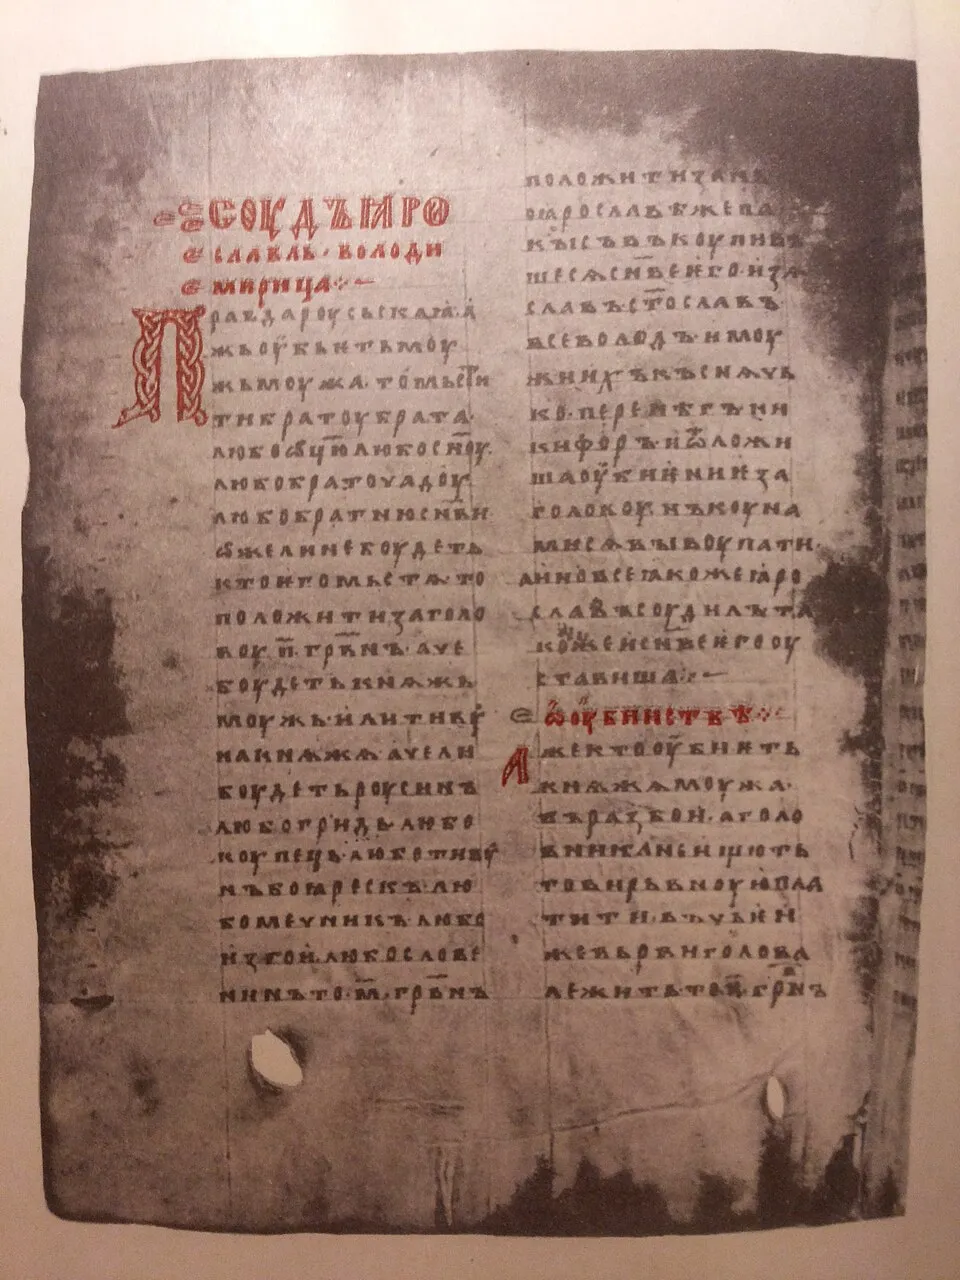 СОУДЪ ꙖРО
СЛАВЛЬ · ВОЛОДИ
МИРИЦА
ПРАВДА РОУСЬСКАꙖ · А
ЖЬ ОУБЬѤТЬ МОУ
ЖЬ МОУЖА · ТО МЬСТИ
ТИ БРАТОУ БРАТА ·
ЛЮБО ѾЦЮ ЛЮБО СН҃ОУ ·
ЛЮБО БРАТОУЧАДОУ
ЛЮБО БРАТНЮ СН҃ВИ
ѠЖЕ ЛИ НЕ БОУДЕТЬ
КТО ѤГО МЬСТѦ ТО
ПОЛОЖИТИ ЗА ГОЛО
ВОУ · П҃ · ГРВ҃НЪ · АЧЕ
БОУДЕТЬ КНѦЖЬ
МОУЖЬ · ИЛИ ТИВОУ
НА КНѦЖА · АЧЕ ЛИ
БОУДЕТЬ РОУСИНЪ
ЛЮБО ГРИДЬ · ЛЮБО
КОУПЕЦЬ · ЛЮБО ТИВОУ
НЪ БОꙖРЕСКЪ · ЛЮ
БО МЕЧНИКЪ · ЛЮБО
ИЗГОИ · ЛЮБО СЛОВЕ
НИНЪ ТО · М҃ · ГРВ҃НЪ
ПОЛОЖИТИ ЗА НЬ
ПО ꙖРОСЛАВѢ ЖЕ ПА
КЫ СЪВЪКОУПИВЪ
ШЕСѦ СН҃ВЕ ѤГО · ИЗѦ
СЛАВЪ СТ҃ОСЛАВЪ
ВСЕВОЛОДЪ · И МОУ
ЖИ ИХЪ КЪСНѦЧЬ
КО · ПЕРЕНѢГЪ · НИ
КИФОРЪ · И ѾЛОЖИ
ША ОУБИѤНИѤ ЗА
ГОЛОВОУ · НЪ КОУНА
МИ СѦ ВЫКОУПАТИ ·
А ИНО ВСЕ ꙖКОЖЕ ꙖРО
СЛАВЪ СОУДИЛЪ ТА
КОЖЕ И СН҃ВЕ ѤГО ОУ
СТАВИША
Ѡ ОУБИИСТВѢ
АЖЕ КТО ОУБИѤТЬ
КНѦЖА МОУЖА ·
ВЪ РАЗБОИ · А ГОЛО
ВНИКА НЕ ИЩЮТЬ
ТО ВИРЬВНОУЮ ПЛА
ТИТИ · ВЪ ЧЬѤИ
ЖЕ ВЬРВИ ГОЛОВА
ЛЕЖИТЬ ТО П҃ · ГРВ҃НЪ